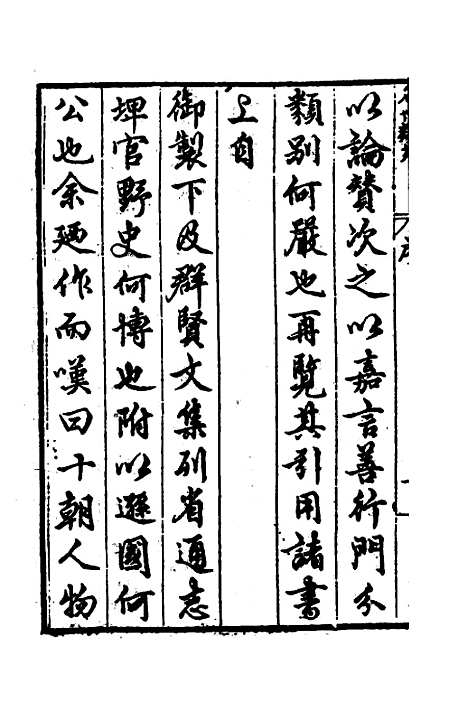 以論贊次之以嘉言善行門分
類別何嚴也再覽其引用諸書
上自
御製下及群賢文集列省通志
埤官野史何博也附以遜國何
公也余廼作而嘆曰十朝人物